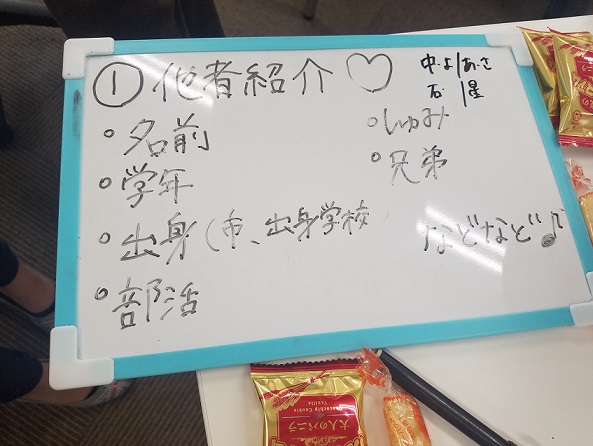 ① 他者紹介 ♡
中・よ/あ・さ
石/星
○名前
○学年
○出身(市、出身学校)
○部活
○しゅみ
○兄弟
などなど♪
大人のバニラ